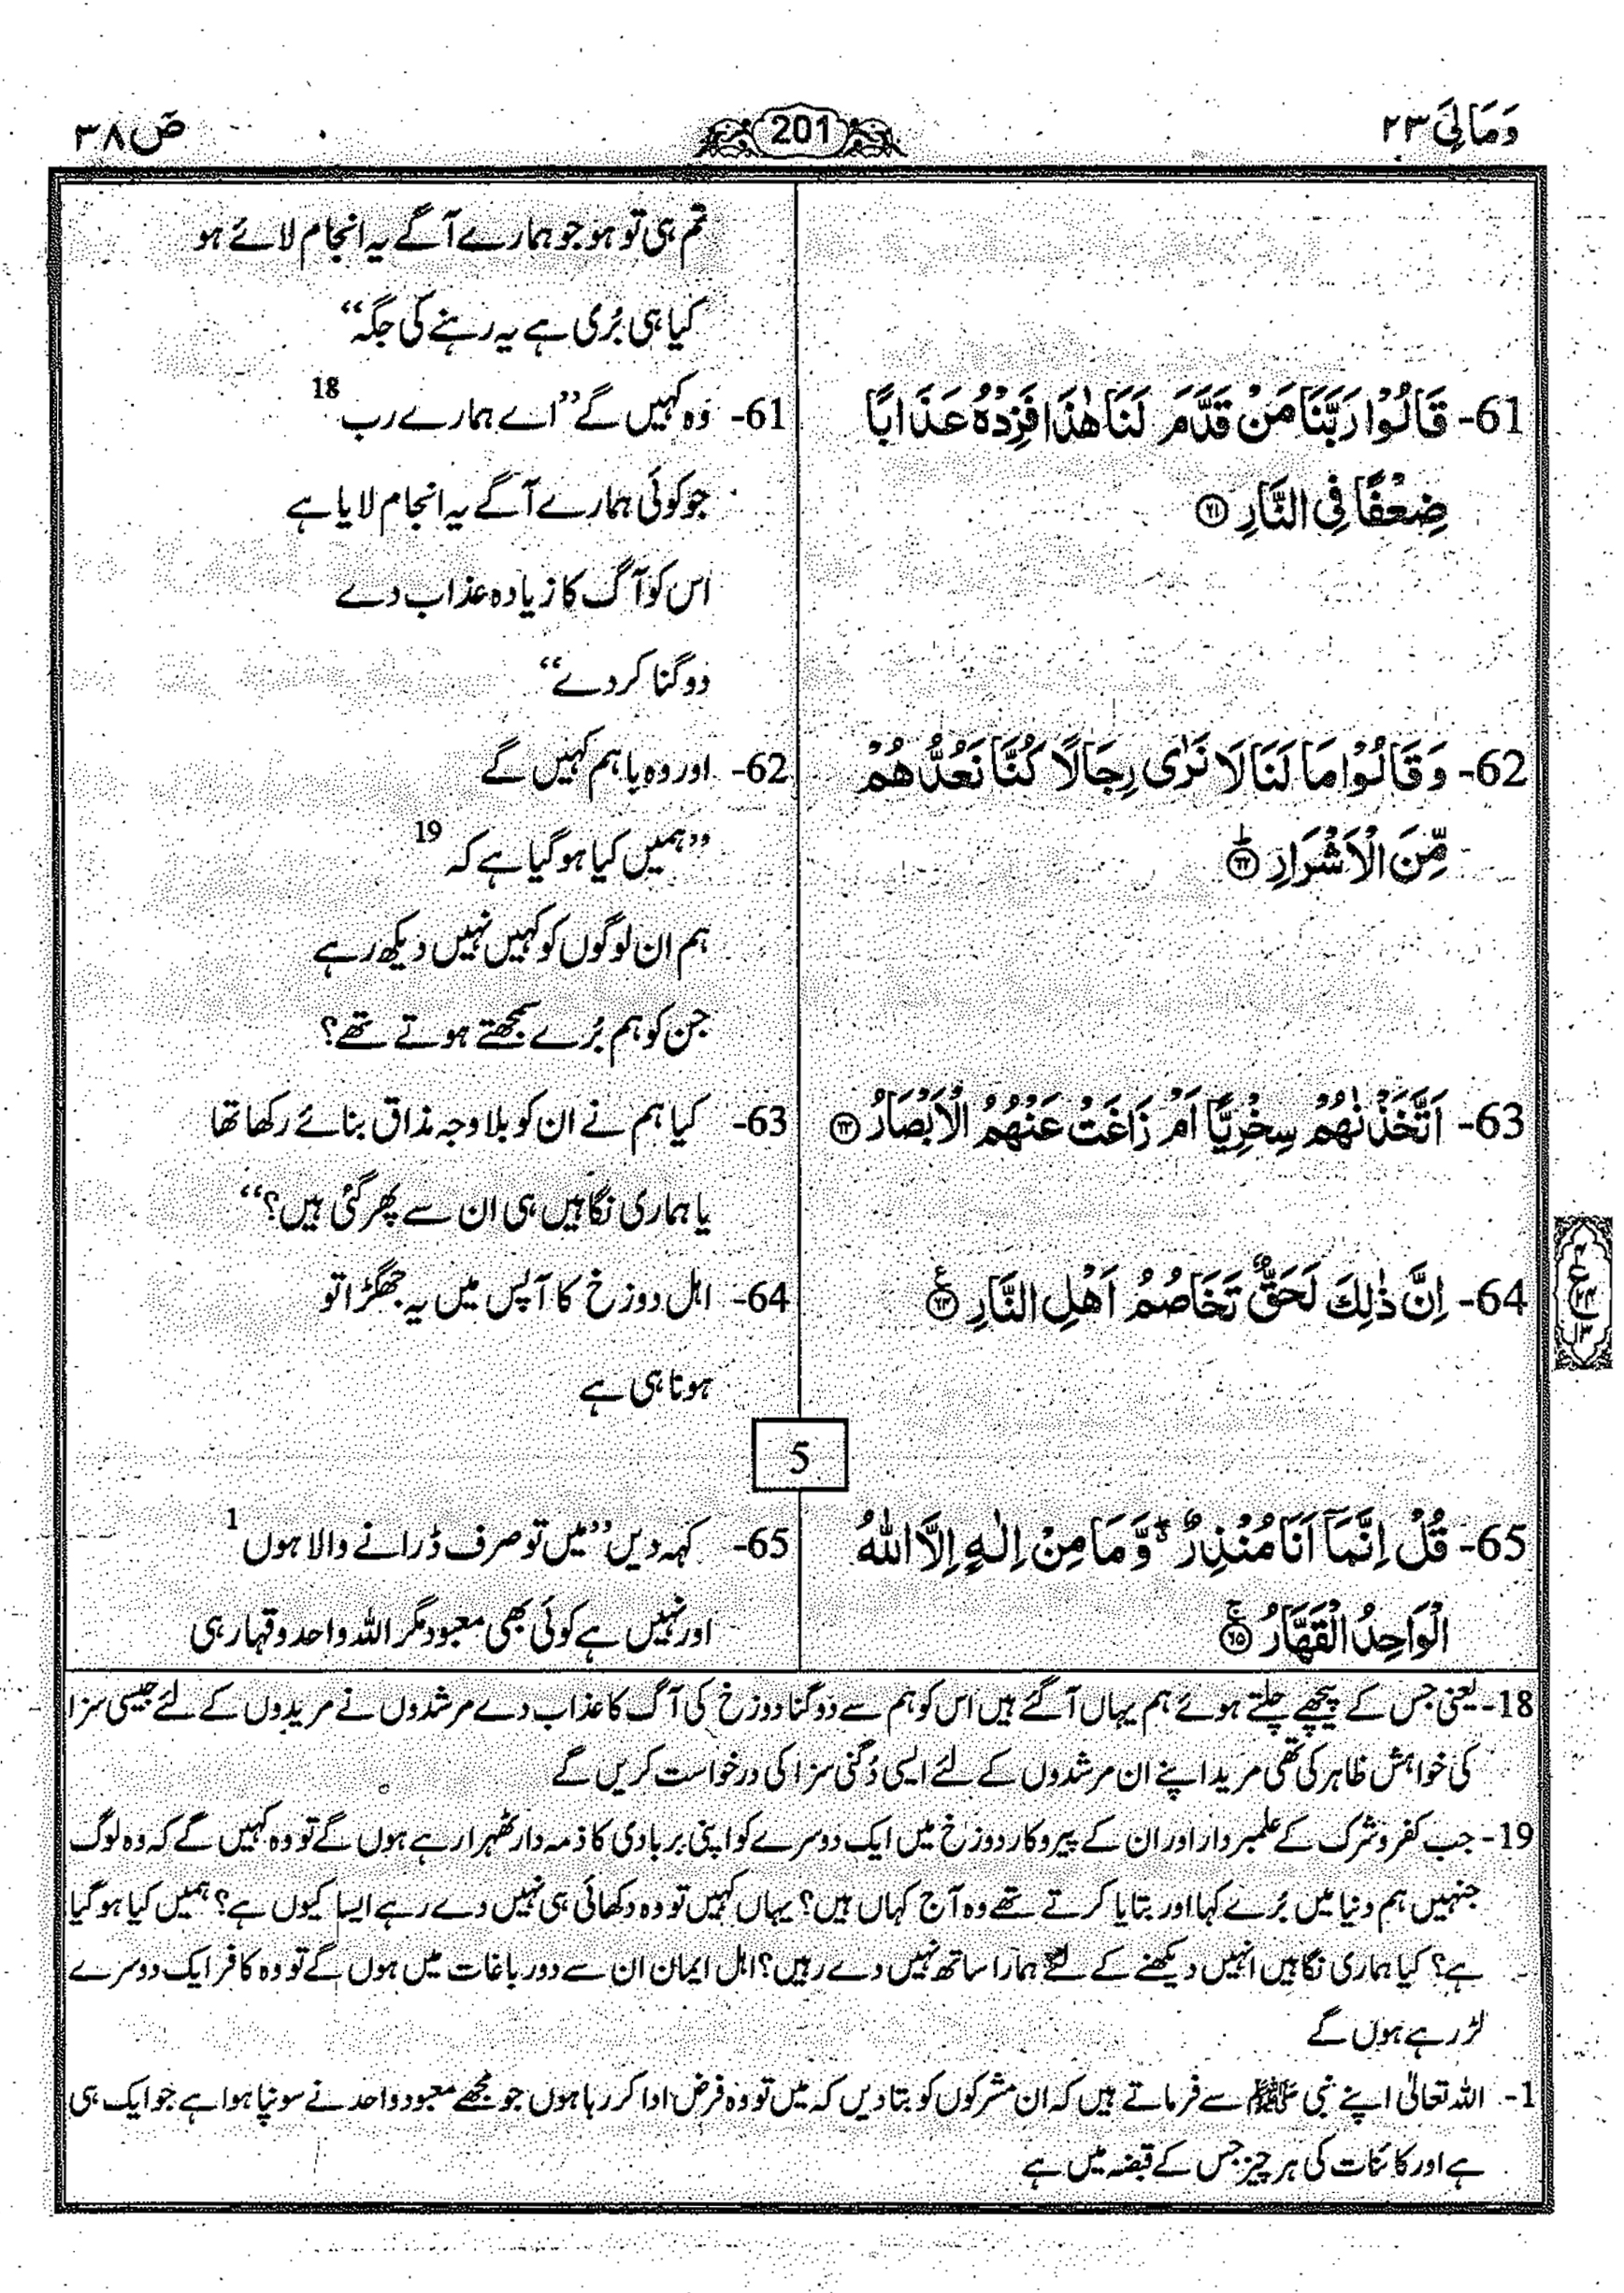 وَمَالِیَ ۲۳
201
صٓ ۳۸
تم ہی تو ہو جو ہمارے آگے یہ انجام لائے ہو
کیا ہی بُری ہے یہ رہنے کی جگہ“
61- قَالُوْا رَبَّنَا مَنْ قَدَّمَ لَنَا هٰذَا فَزِدْهُ عَذَابًا
ضِعْفًا فِي النَّارِ ﴿۶۱﴾
61- وہ کہیں گے ”اے ہمارے رب 18
جو کوئی ہمارے آگے یہ انجام لایا ہے
اس کو آگ کا زیادہ عذاب دے
دوگنا کر دے“
62- وَ قَالُوْا مَا لَنَا لَا نَرٰى رِجَالًا كُنَّا نَعُدُّهُمْ
مِّنَ الْاَشْرَارِ ﴿۶۲﴾ؕ
62- اور وہ یا ہم کہیں گے
”ہمیں کیا ہو گیا ہے کہ 19
ہم ان لوگوں کو کہیں نہیں دیکھ رہے
جن کو ہم بُرے سمجھتے ہوتے تھے؟
63- اَتَّخَذْنٰهُمْ سِخْرِيًّا اَمْ زَاغَتْ عَنْهُمُ الْاَبْصَارُ ﴿۶۳﴾
63- کیا ہم نے ان کو بلا وجہ مذاق بنائے رکھا تھا
یا ہماری نگاہیں ہی ان سے پھر گئی ہیں؟“
64- اِنَّ ذٰلِكَ لَحَقٌّ تَخَاصُمُ اَهْلِ النَّارِ ﴿۶۴﴾ۧ
64- اہل دوزخ کا آپس میں یہ جھگڑا تو
ہونا ہی ہے
5
65- قُلْ اِنَّمَاۤ اَنَا مُنْذِرٌ ۖۗ وَّ مَا مِنْ اِلٰهٍ اِلَّا اللّٰهُ
الْوَاحِدُ الْقَهَّارُ ﴿۶۵﴾ۚ
65- کہہ دیں ”میں تو صرف ڈرانے والا ہوں 1
اور نہیں ہے کوئی بھی معبود مگر اللہ واحد و قہار ہی
18- یعنی جس کے پیچھے چلتے ہوئے ہم یہاں آ گئے ہیں اس کو ہم سے دوگنا دوزخ کی آگ کا عذاب دے مرشدوں نے مریدوں کے لئے جیسی سزا
کی خواہش ظاہر کی تھی مرید اپنے ان مرشدوں کے لئے ایسی دُگنی سزا کی درخواست کریں گے
19- جب کفر و شرک کے علمبردار اور ان کے پیروکار دوزخ میں ایک دوسرے کو اپنی بربادی کا ذمہ دار ٹھہرا رہے ہوں گے تو وہ کہیں گے کہ وہ لوگ
جنہیں ہم دنیا میں بُرے کہا اور بتایا کرتے تھے وہ آج کہاں ہیں؟ یہاں کہیں تو وہ دکھائی ہی نہیں دے رہے ایسا کیوں ہے؟ ہمیں کیا ہو گیا
ہے؟ کیا ہماری نگاہیں انہیں دیکھنے کے لئے ہمارا ساتھ نہیں دے رہیں؟ اہل ایمان ان سے دور باغات میں ہوں گے تو وہ کافر ایک دوسرے
لڑ رہے ہوں گے
1- اللہ تعالیٰ اپنے نبی ﷺ سے فرماتے ہیں کہ ان مشرکوں کو بتا دیں کہ میں تو وہ فرض ادا کر رہا ہوں جو مجھے معبود واحد نے سونپا ہوا ہے جو ایک ہی
ہے اور کائنات کی ہر چیز جس کے قبضہ میں ہے